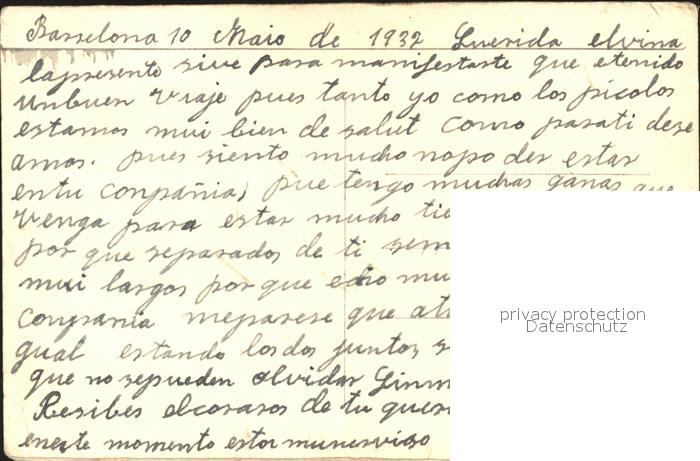 Barselona 10 Maio de 1932 Querida elvina
lapresente sive para manifestarte que etenido
unbuen viaje pues tanto yo como los picolos
estamos mui bien de salut como parati dese
amos. pues siento mucho nopo der estar
entu conpañia, pue tengo muchas ganas que
venga para estar mucho tie
por que separados de ti sem
mui largos por que edio mu
conpania meparese que
gual estando losdos juntos, s
que no sepueden olvidar
Resibes elcorasos de tu quer
eneste momento estoi munervioso
privacy protection
Datenschutz